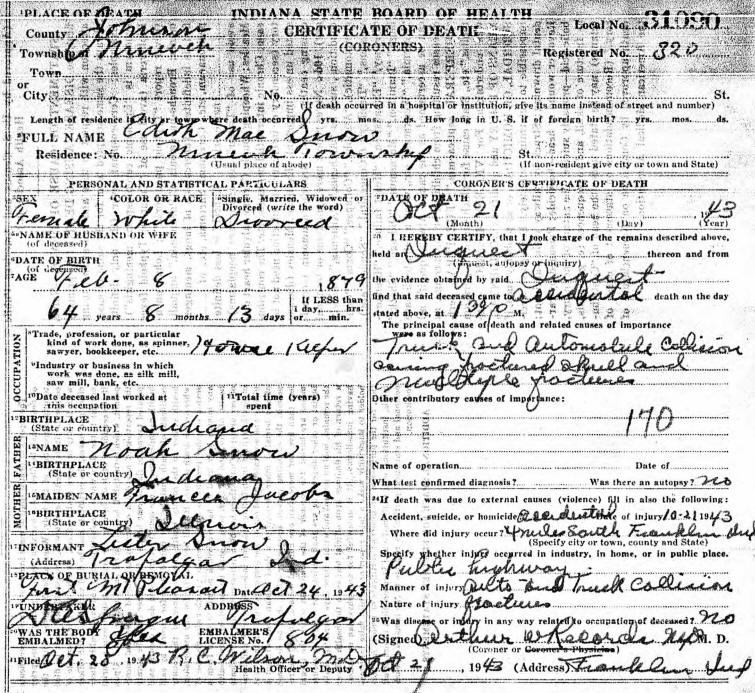 PLACE OF DEATH
INDIANA STATE BOARD OF HEALTH
County Johnson
CERTIFICATE OF DEATH
Local No. 31090
Township of Nineveh
(CORONERS)
Registered No. 320
Town
or
City No. St.
(If death occurred in a hospital or institution, give its name instead of street and number)
Length of residence in city or town where death occurred yrs. mos. ds. How long in U. S. if of foreign birth? yrs. mos. ds.
FULL NAME Edith Mae Snow
Residence: No. Nineveh Township St.
(Usual place of abode) (If non-resident give city or town and State)
PERSONAL AND STATISTICAL PARTICULARS
SEX COLOR OR RACE Single, Married, Widowed or Divorced (write the word)
Female White Divorced
NAME OF HUSBAND OR WIFE
(of deceased)
DATE OF BIRTH
(of deceased)
Feb- 8, 1879
AGE
64 years 8 months 13 days If LESS than 1 day, hrs. or min.
OCCUPATION
Trade, profession, or particular
kind of work done, as spinner,
sawyer, bookkeeper, etc. House Keeper
Industry or business in which
work was done, as silk mill,
saw mill, bank, etc.
Date deceased last worked at
this occupation
Total time (years)
spent
BIRTHPLACE
(State or country) Indiana
FATHER
NAME Noah Snow
BIRTHPLACE
(State or country) Indiana
MOTHER
MAIDEN NAME Frances Jacobs
BIRTHPLACE
(State or country) Illinois
INFORMANT Snow
(Address) Trafalgar Ind.
PLACE OF BURIAL OR REMOVAL
First Mt Pleasant Date Oct 24, 1943
UNDERTAKER ADDRESS
Sprague Trafalgar
WAS THE BODY
EMBALMED? Yes
EMBALMER'S
LICENSE No. 804
Filed Oct. 28, 1943 R. C. Wilson, M.D.
Health Officer or Deputy
CORONER'S CERTIFICATE OF DEATH
DATE OF DEATH
Oct 21 43
(Month) (Day) (Year)
I HEREBY CERTIFY, that I took charge of the remains described above,
held an Inquest thereon and from
(inquest, autopsy or inquiry)
the evidence obtained by said Inquest
find that said deceased came to accidental death on the day
stated above, at M.
The principal cause of death and related causes of importance
were as follows:
Truck and Automobile Collision
causing fractured skull and
Multiple fractures
Other contributory causes of importance:
170
Name of operation Date of
What test confirmed diagnosis? Was there an autopsy? no
If death was due to external causes (violence) fill in also the following:
Accident, suicide, or homicide accidental Date of injury 10-21 1943
Where did injury occur? 4 miles South Franklin Ind
(Specify city or town, county and State)
Specify whether injury occurred in industry, in home, or in public place.
Public highway
Manner of injury Auto and Truck Collision
Nature of injury fractures
Was disease or injury in any way related to occupation of deceased? No
(Signed) Arthur W Records M. D.
(Coroner or Coroner's Physician)
Oct 21 1943 (Address) Franklin Ind